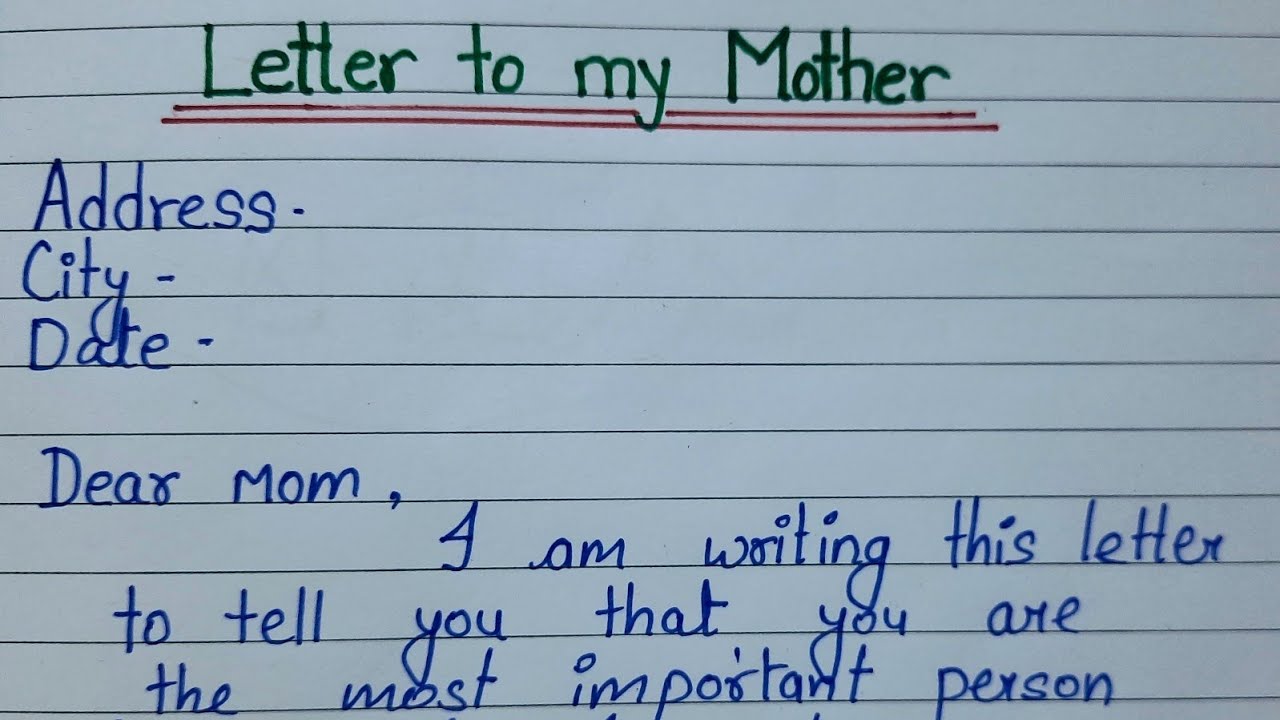 Letter to my Mother
Address.
City -
Date -
Dear Mom,
I am writing this letter
to tell you that you are
the most important person